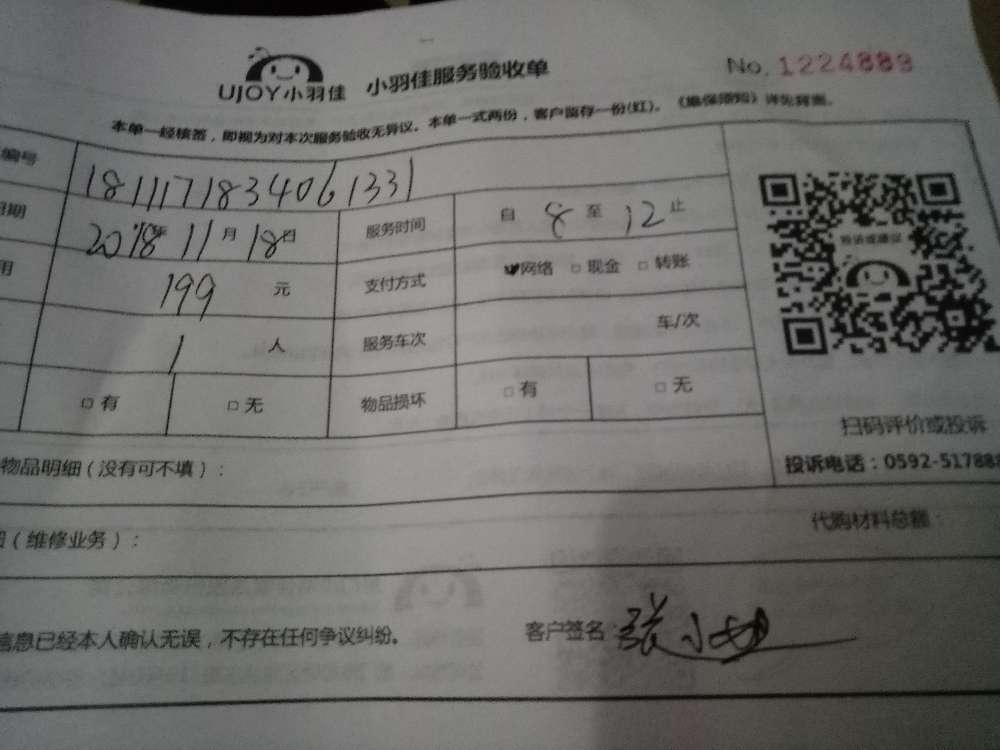 UJOY小羽佳 小羽佳服务验收单 No. 1224889
本单一经核签，即视为对本次服务验收无异议。本单一式两份，客户留存一份(红)。《维保须知》详见背面。
编号 1811171834061331
日期 2018年11月18日 服务时间 自 8 至 12 止
用 199 元 支付方式 网络 □ 现金 □ 转账
1 人 服务车次 车/次
□ 有 □ 无 物品损坏 □ 有 □ 无
扫码评价或投诉
物品明细（没有可不填）： 投诉电话：0592-517888
（维修业务）： 代购材料总额：
信息已经本人确认无误，不存在任何争议纠纷。 客户签名：张小